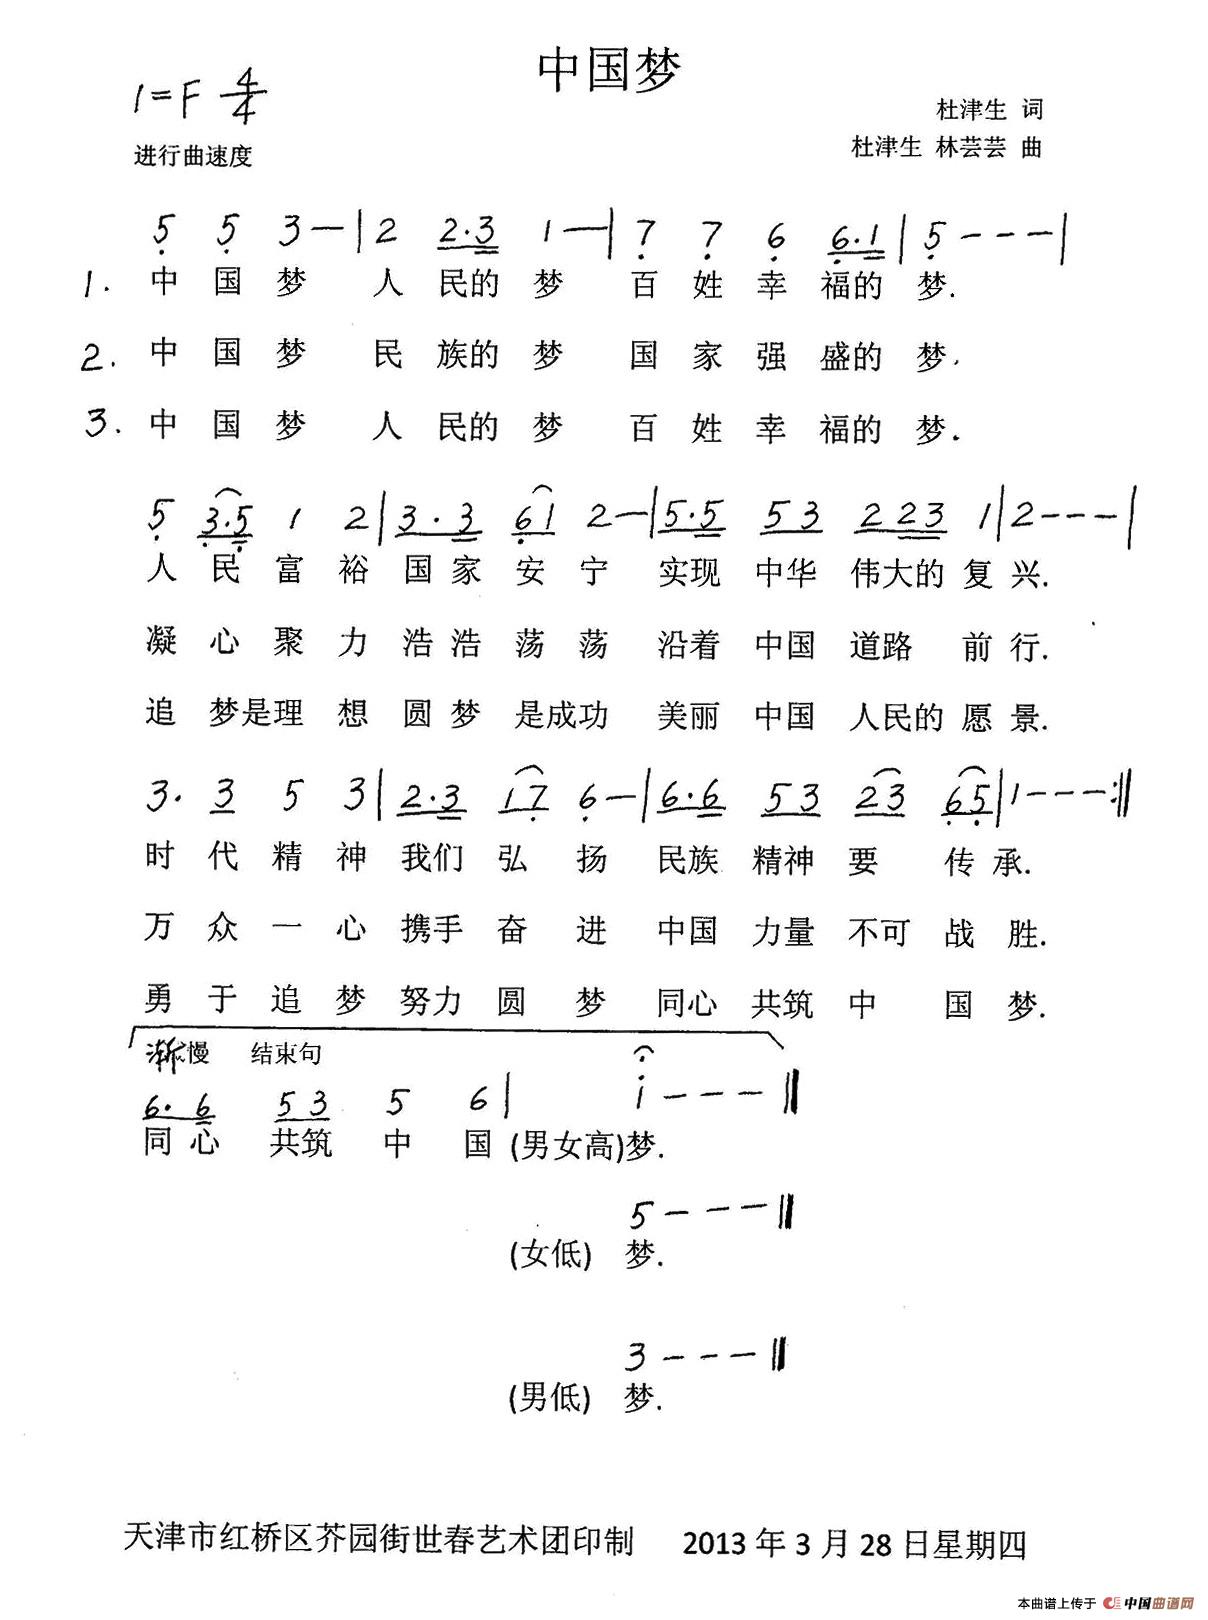 中国梦
1=F 4/4
杜津生 词
进行曲速度
杜津生 林芸芸 曲
5̣ 5̣ 3 — | 2 2·3 1 — | 7̣ 7̣ 6̣ 6̣·1 | 5̣ - - - |
1. 中 国 梦 人 民的 梦 百 姓 幸 福的 梦.
2. 中 国 梦 民 族的 梦 国 家 强 盛的 梦.
3. 中 国 梦 人 民的 梦 百 姓 幸 福的 梦.
5̣ 3̣·5̣ 1 2 | 3·3 6̣1 2 — | 5·5 53 223 1 | 2 - - - |
人 民 富 裕 国 家 安 宁 实现 中华 伟大的 复 兴.
凝 心 聚 力 浩 浩 荡 荡 沿着 中国 道路 前 行.
追 梦是理 想 圆 梦 是成功 美丽 中国 人民的 愿 景.
3· 3 5 3 | 2·3 17̣ 6̣ — | 6·6 53 23 6̣5̣ | 1 - - - :||
时 代 精 神 我们 弘 扬 民族 精神 要 传 承.
万 众 一 心 携手 奋 进 中国 力量 不可 战 胜.
勇 于 追 梦 努力 圆 梦 同心 共筑 中 国 梦.
渐慢 结束句
6· 6 53 5 6 | i - - - ||
同 心 共筑 中 国 (男女高)梦.
5 - - - ||
(女低) 梦.
3 - - - ||
(男低) 梦.
天津市红桥区芥园街世春艺术团印制 2013 年 3 月 28 日星期四
本曲谱上传于 中国曲谱网